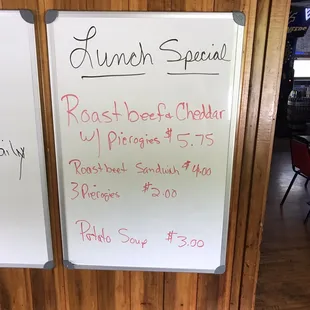 Lunch Special
Roast beef & Cheddar
w/ Pierogies $5.75
Roast beef Sandwich $4.00
3 Pierogies $2.00
Potato Soup $3.00